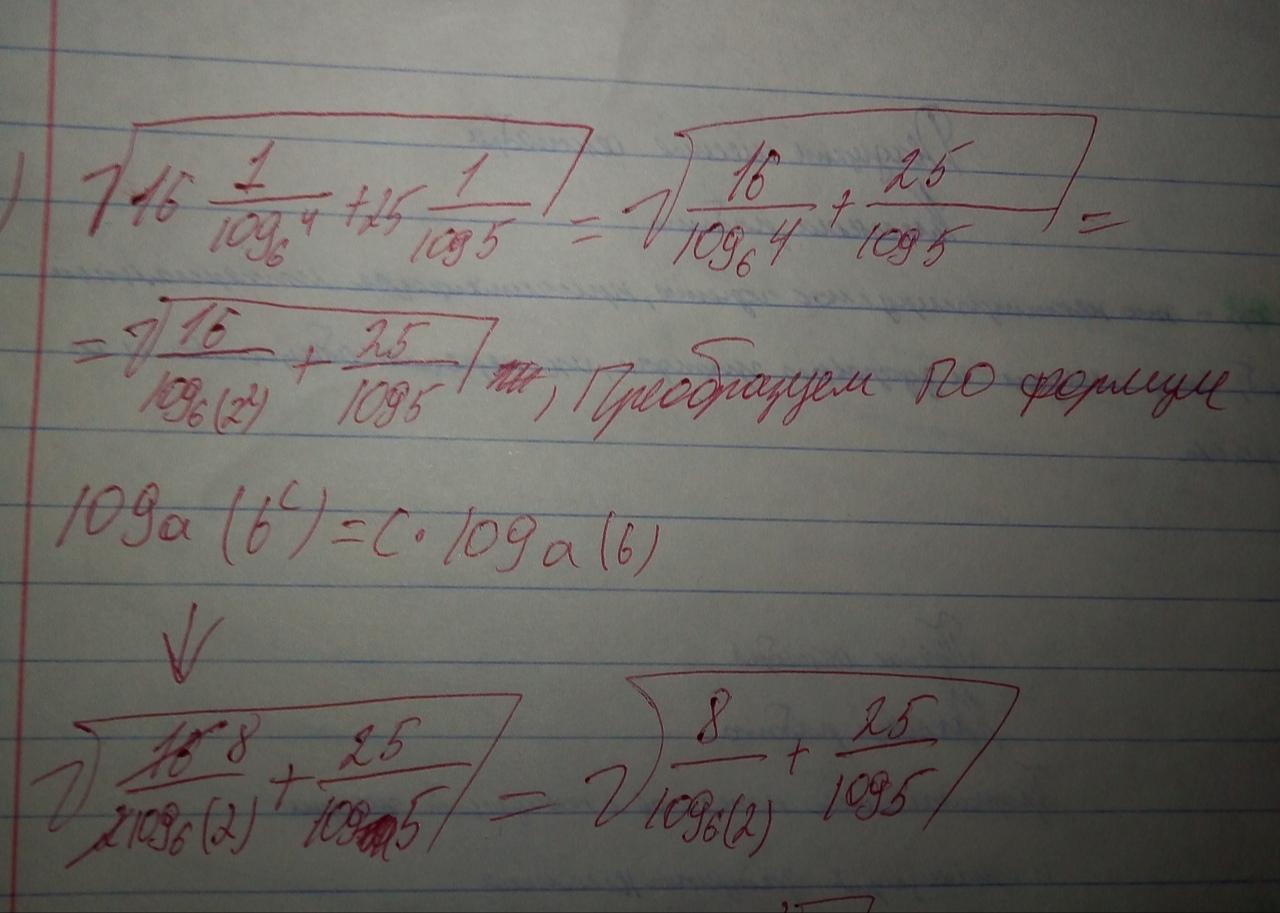 ) √(16 1/log₆4 + 25 1/log5) = √(16/log₆4 + 25/log5) =
= √(16/log₆(2²) + 25/log5), Преобразуем по формуле
log a (b^c) = c · log a (b)
↓
√(16 8/2log₆(2) + 25/log5) = √(8/log₆(2) + 25/log5)